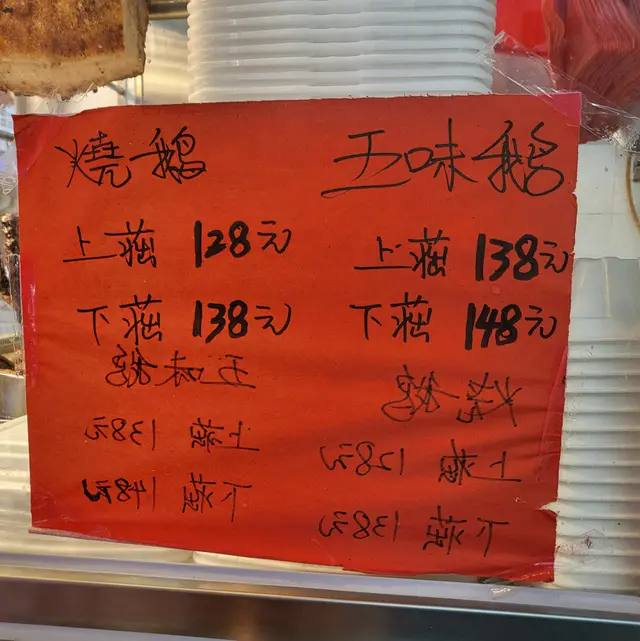 燒鵝
上莊 128元
下莊 138元
五味鵝
上莊 138元
下莊 148元
五味鵝
上莊 138元
下莊 148元
燒鵝
上莊 128元
下莊 138元